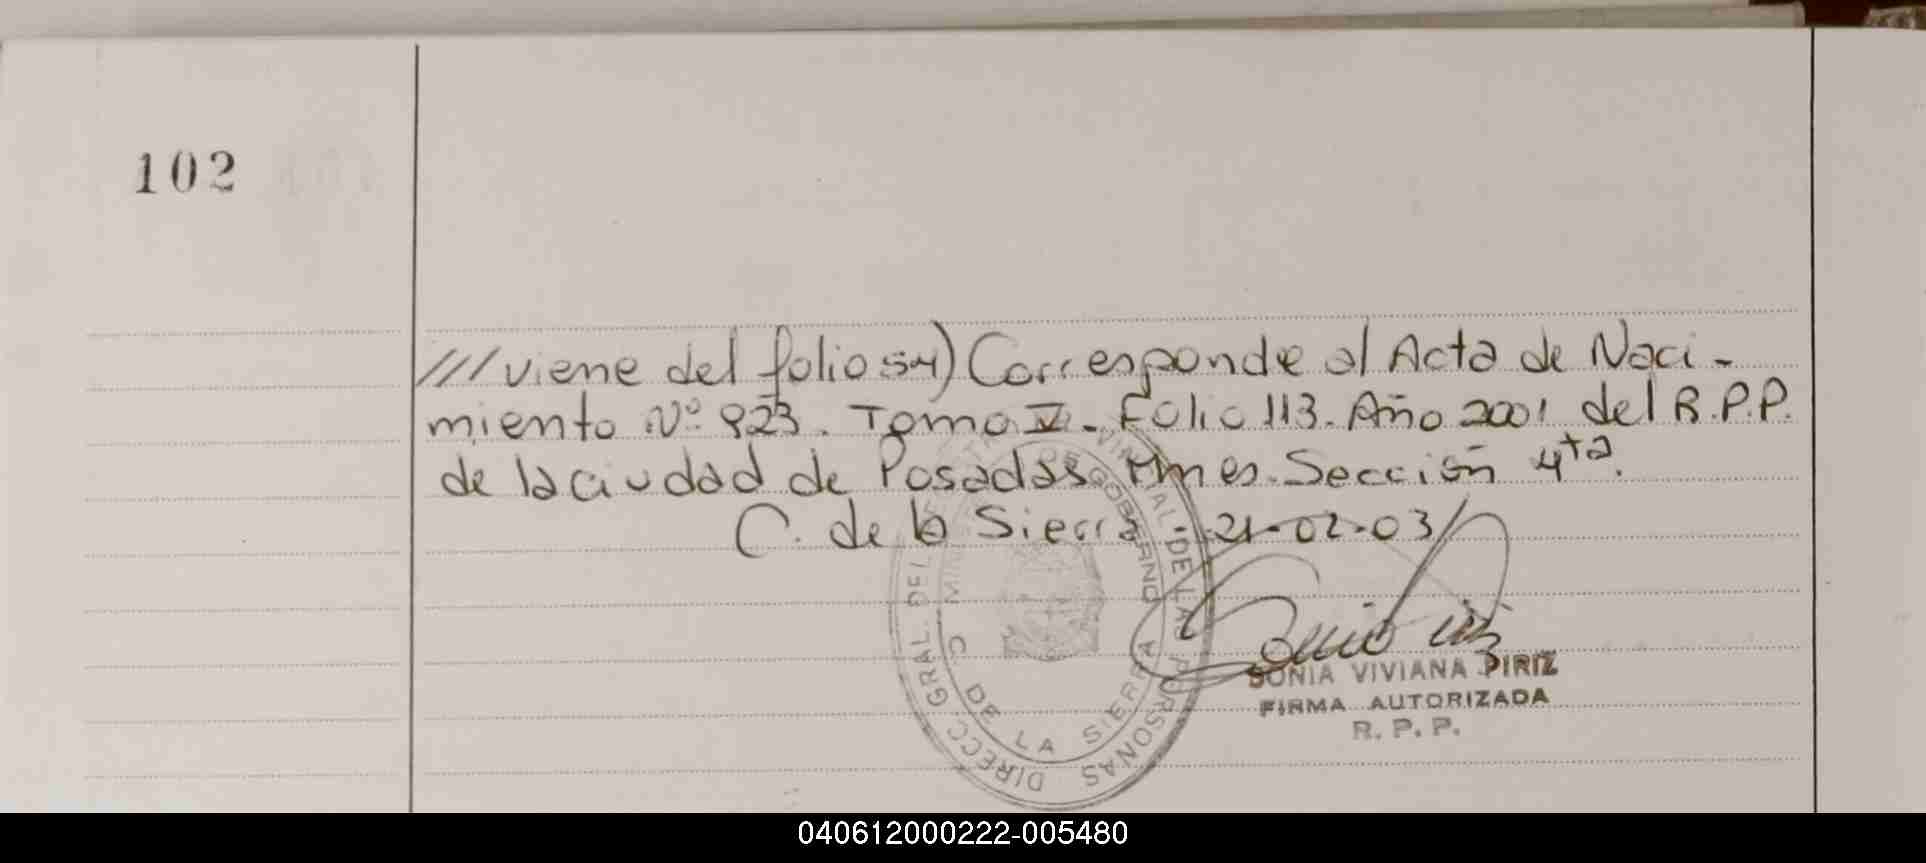 102
///viene del folio 54) Corresponde al Acta de Naci-
miento Nº 823. Tomo V - Folio 113. Año 2001 del R.P.P.
de la ciudad de Posadas Mnes. Sección 4ta.
C. de la Sierra 21-02-03
DIRECC. GRAL. DEL PROVINCIAL DE LAS PERSONAS
DE GOBIERNO
C. DE LA SIERRA
SONIA VIVIANA PIRIZ
FIRMA AUTORIZADA
R. P. P.
040612000222-005480